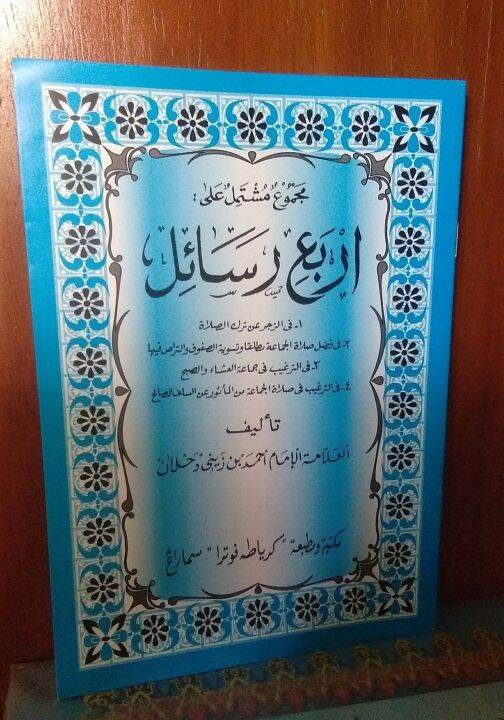 مجموع مشتمل على :
اربع رسائل
١- فى الزجر عن ترك الصلاة
٢- فى فضل صلاة الجماعة مطلقا وتسوية الصفوف والتراص فيها
٣- فى الترغيب فى جماعة العشاء والصبح
٤- فى الترغيب فى صلاة الجماعة من المأثور عن السلف الصالح
تأليف
العلامة الإمام احمد بن زينى دحلان
مكتبة ومطبعة "كرياطه فوترا" سماراڠ